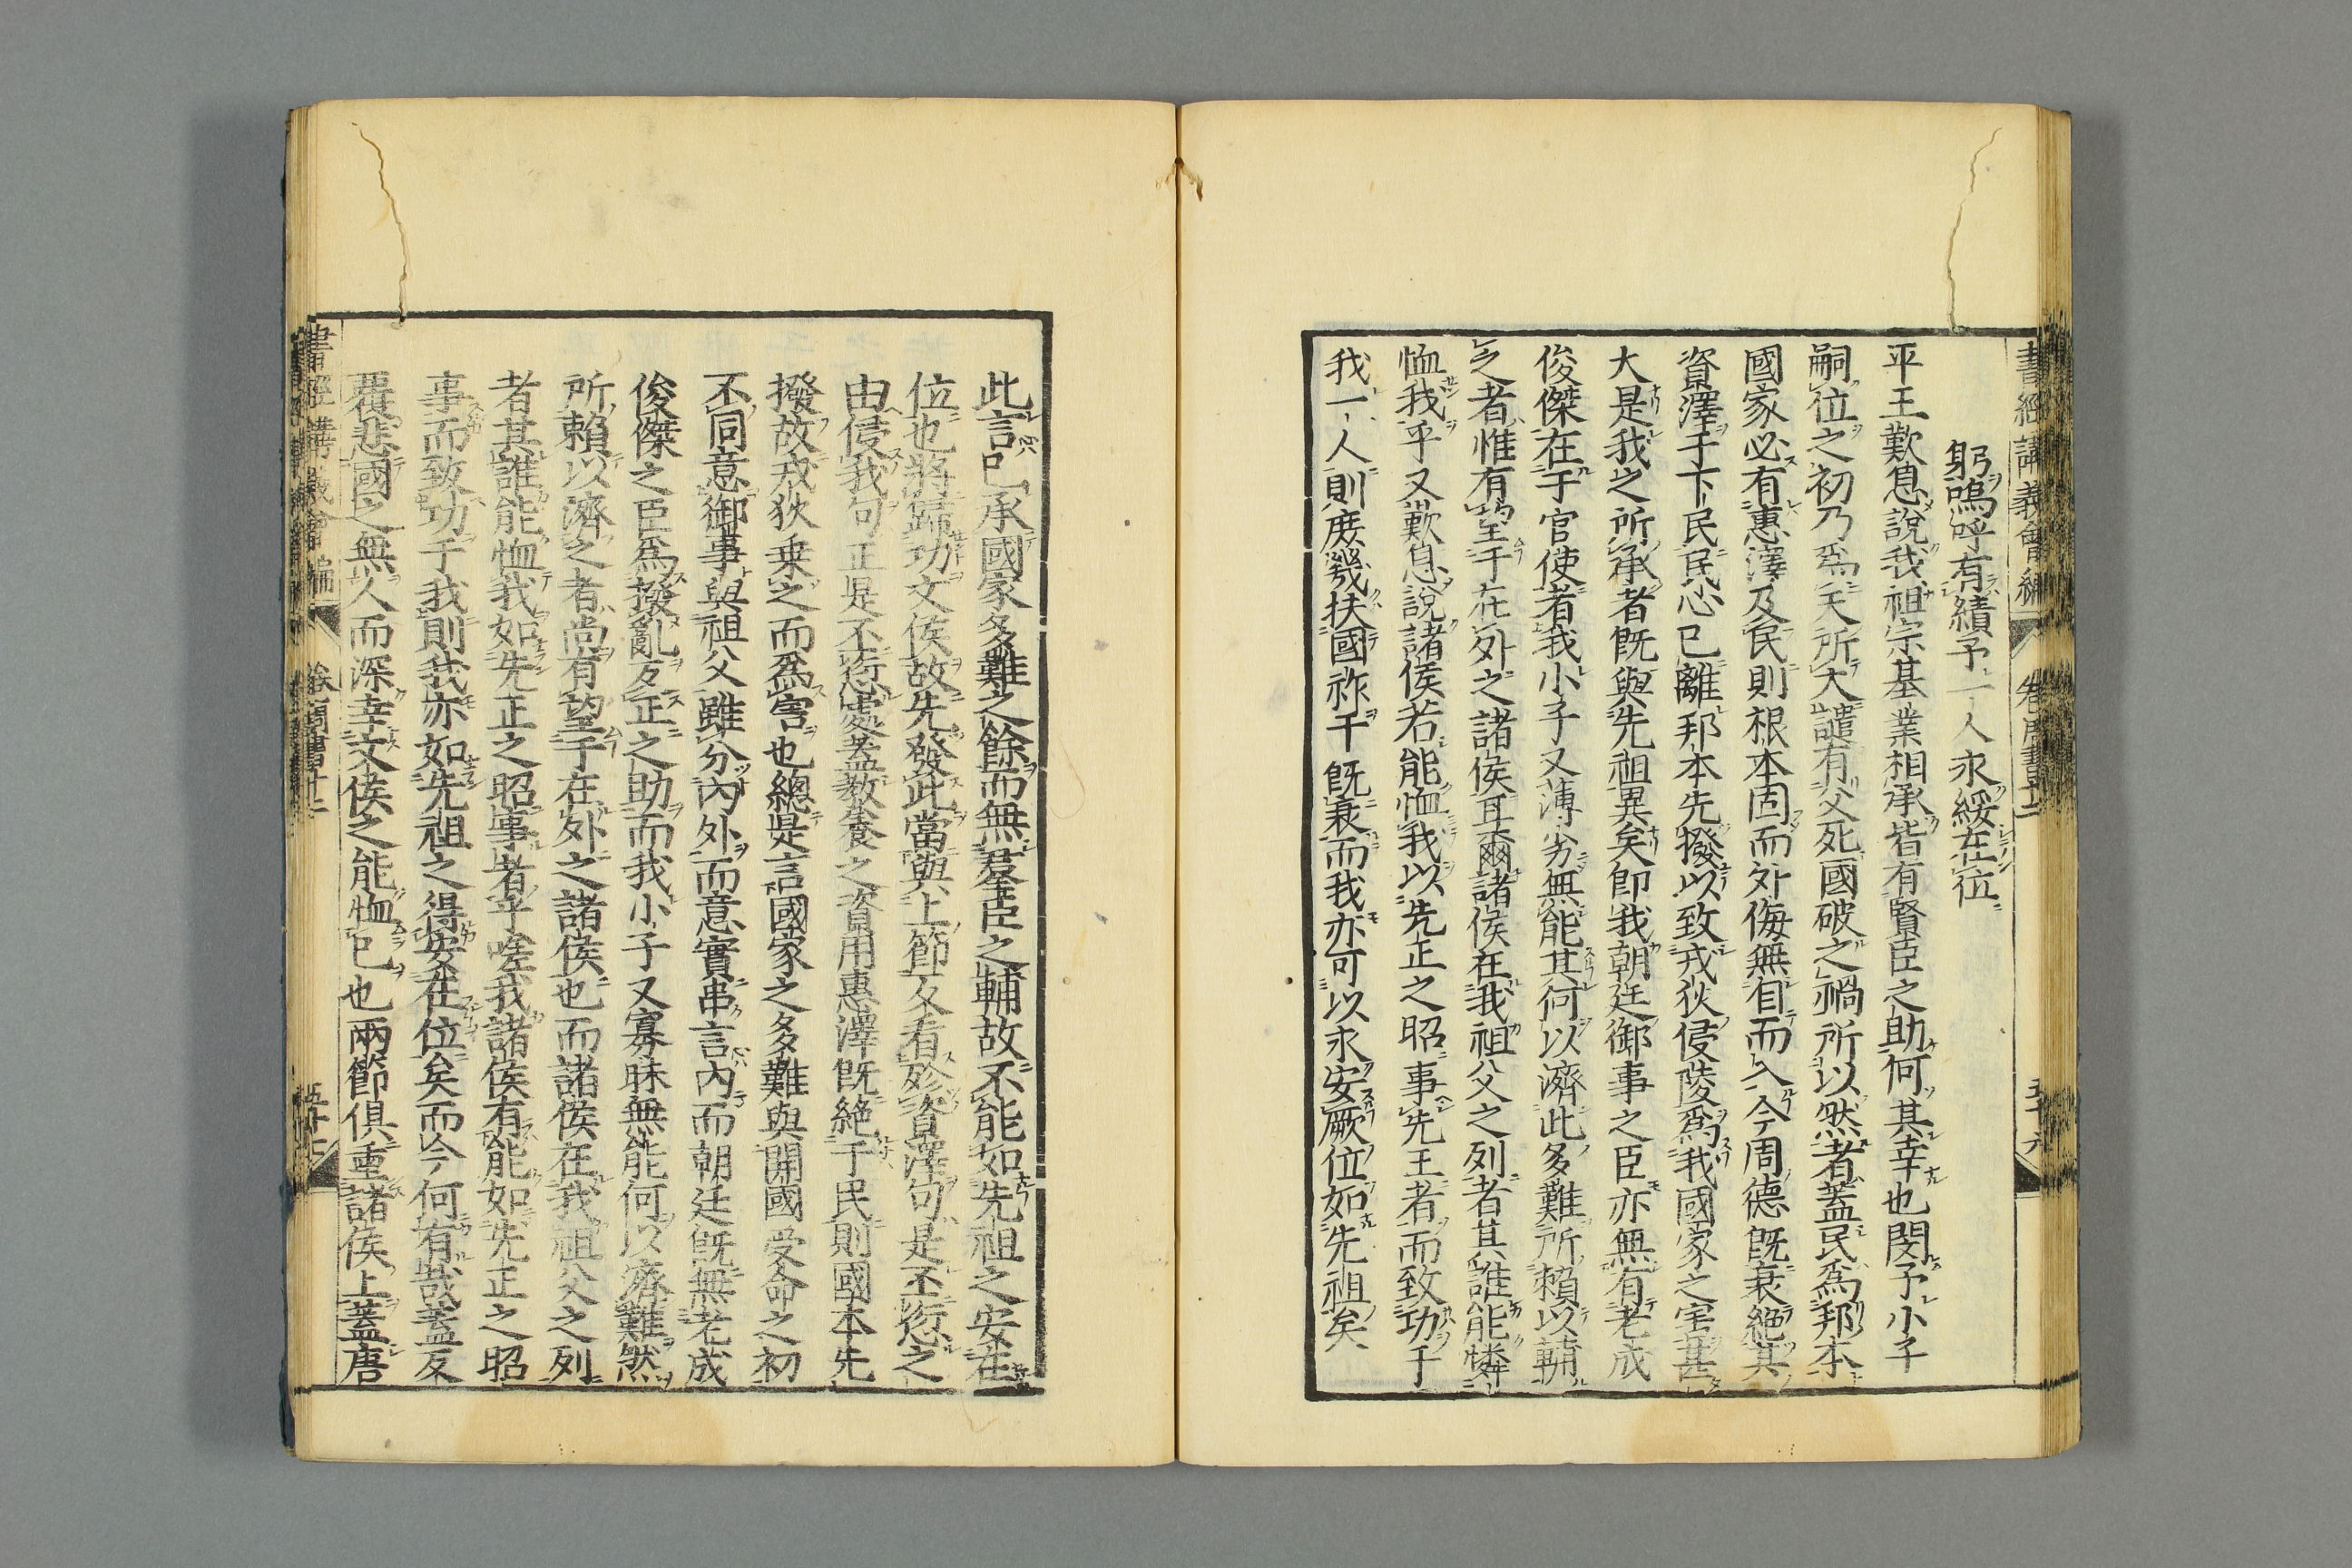 書經講義會編 卷 周書十二 五十六
躬嗚呼有績予一人永綏在位
平王歎息說我祖宗基業相承皆有賢臣之助何其幸也閔予小子
嗣位之初乃爲天所大譴有父死國破之禍所以然者蓋民爲邦本
國家必有惠澤及民則根本固而外侮無自而入今周德既衰絕其
資澤于下民民心已離邦本先撥以致戎狄侵陵爲我國家之害甚
大是我之所承者既與先祖異矣即我朝廷御事之臣亦無有老成
俊傑在于官使者我小子又薄劣無能其何以濟此多難所賴以輔
之者惟有望于在外之諸侯耳爾諸侯在我祖父之列者其誰能憐
恤我乎又歎息說諸侯若能恤我以先正之昭事先王者而致功于
我一人則庶幾扶國祚于既衰而我亦可以永安厥位如先祖矣
此言已承國家多難之餘而無羣臣之輔故不能如先祖之安在
位也將歸功文侯故先發此當與上節反看殄資澤句是丕愆之
由侵我句正是不愆處蓋教養之資用惠澤既絕于民則國本先
撥故戎狄乗之而爲害也總是言國家之多難與開國受命之初
不同意御事與祖父雖分內外而意實串言內而朝廷既無老成
俊傑之臣爲撥亂反正之助而我小子又寡昧無能何以濟難然
所賴以濟之者尚有望于在外之諸侯也而諸侯在我祖父之列
者其誰能恤我如先正之昭事者乎嗟我諸侯有能如先正之昭
事而致功于我則我亦如先祖之得安在位矣而今何有哉蓋反
覆悲國之無人而深幸文侯之能恤已也兩節俱重諸侯上蓋唐
書經講義會編 卷 周書十二